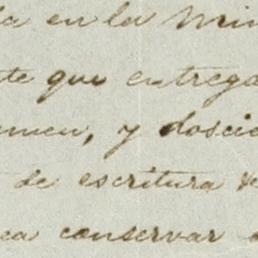 la en la Min
te que entrega
umen, y doscie
de escritura
ca conservar